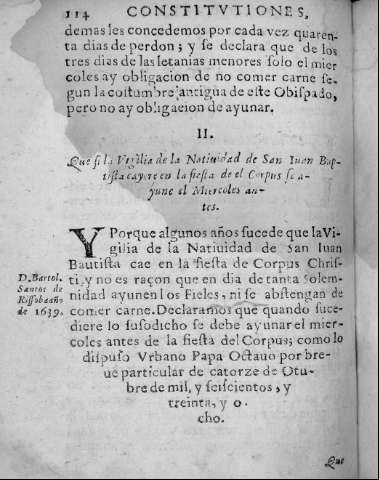 114 CONSTITVTIONES,
demas les concedemos por cada vez quaren-
ta dias de perdon; y se declara que de los
tres dias de las letanias menores solo el mier
coles ay obligacion de no comer carne se-
gun la costumbre antigua de este Obispado,
pero no ay obligacion de ayunar.
II.
Que si la Vigilia de la Natiuidad de San Iuan Bap-
tista cayere en la fiesta de el Corpus se a-
yune el Miercoles an-
tes.
Y Porque algunos años sucede que la Vi-
gilia de la Natiuidad de San Iuan
Bautista cae en la fiesta de Corpus Chris-
ti, y no es raçon que en dia de tanta solem-
nidad ayunen los Fieles, ni se abstengan de
comer carne. Declaramos que quando suce-
diere lo susodicho se debe ayunar el mier-
coles antes de la fiesta del Corpus; como lo
dispuso Vrbano Papa Octauo por bre-
ue particular de catorze de Otu-
bre de mil, y seiscientos, y
treinta, y o-
cho.
D. Bartol.
Santos de
Rissoba año
de 1639.
Que